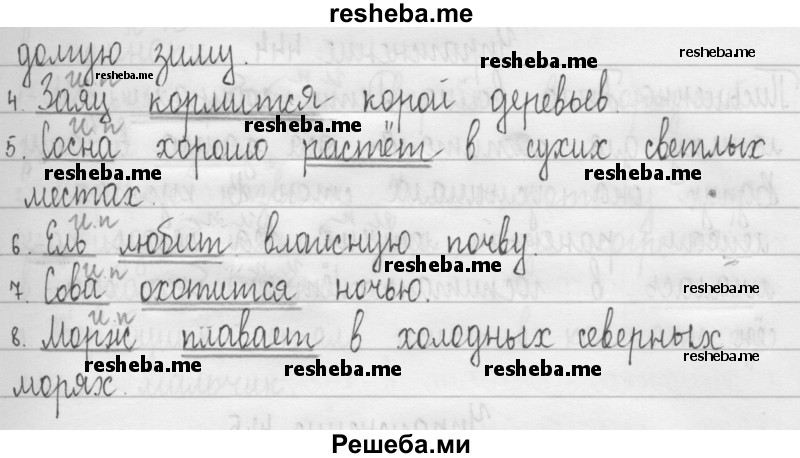 resheba.me
долгую зиму.
resheba.me
resheba.me
и.п
resheba.me
4. Заяц кормится корой деревьев.
и.п
resheba.me
resheba.me
5. Сосна хорошо растёт в сухих светлых
resheba.me
resheba.me
местах.
и.п
6. Ель любит влажную почву.
и.п
resheba.me
resheba.me
7. Сова охотится ночью.
и.п
resheba.me
8. Морж плавает в холодных северных
resheba.me
resheba.me
resheba.me
морях.
Решеба.ми